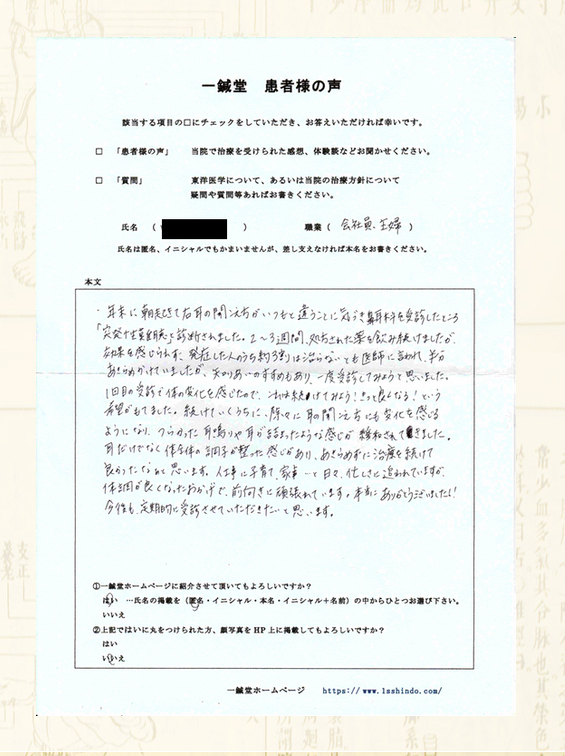 一鍼堂 患者様の声
該当する項目の□にチェックをしていただき、お答えいただければ幸いです。
□ 「患者様の声」 当院で治療を受けられた感想、体験談などお聞かせください。
□ 「質問」 東洋医学について、あるいは当院の治療方針について
疑問や質問等あればお書きください。
氏名 ( ) 職業 ( 会社員、主婦 )
氏名は匿名、イニシャルでもかまいませんが、差し支えなければ本名をお書きください。
本文
・年末に朝起きて右耳の聞え方がいつもと違うことに気づき耳鼻科を受診したところ
「突発性難聴」と診断されました。2〜3週間、処方された薬を飲み続けましたが、
効果を感じられず、発症した人のうち約3割は治らないとも医師に言われ、半分
あきらめかけていましたが、知りあいのすすめもあり、一度受診してみようと思いました。
1回目の受診で体の変化を感じたので、これは続けてみよう！きっと良くなる！という
希望がもてました。続けていくうちに、除々に耳の聞え方にも変化を感じる
ようになり、つらかった耳鳴りや耳が詰まったような感じが緩和されてきました。
耳だけでなく体全体の調子が整った感じがあり、あきらめずに治療を続けて
良かったなぁと思います。仕事に子育て、家事…と日々、忙しさに追われていますが、
体調が良くなったおかげで、前向きに頑張れています。本当にありがとうございました！
今後も、定期的に受診させていただきたいと思います。
①一鍼堂ホームページに紹介させて頂いてもよろしいですか？
はい …氏名の掲載を（匿名・イニシャル・本名・イニシャル＋名前）の中からひとつお選び下さい。
いいえ
②上記ではいに丸をつけられた方、顔写真を HP 上に掲載してもよろしいですか？
はい
いいえ
一鍼堂ホームページ https://www.1sshindo.com/